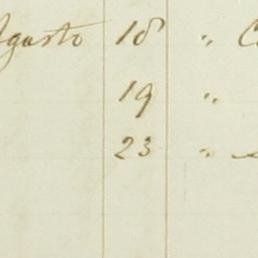 Agosto 18 "
19 "
23 "